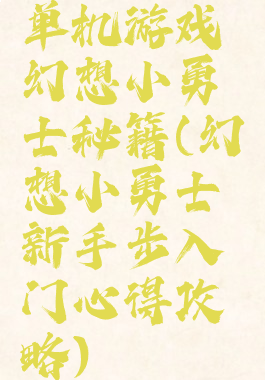 单机游戏
幻想小勇
士秘籍(幻
想小勇士
新手步入
门心得攻
略)